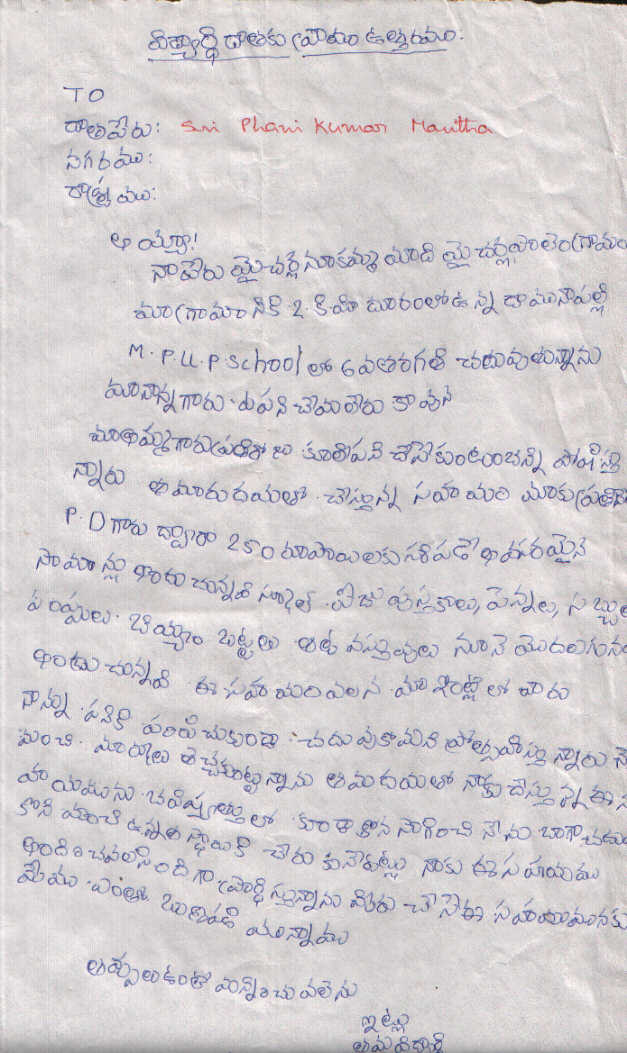 విద్యార్థి దాతకు వ్రాయు ఉత్తరము.
TO
దాతపేరు: Sri Phani Kumar Mantha
నగరము:
రాష్ట్రము:
అయ్యా!
నాపేరు మైచర్ల నూకమ్మ మాది మైచర్లపాలెం గ్రామం
మా గ్రామానికి 2 కి.మీ దూరంలో ఉన్న దామనాపల్లి
M.P.U.P.School లో 6వ తరగతి చదువుతున్నాను
మా నాన్నగారు ఏ పని చేయలేరు కావున
మా అమ్మగారు ప్రతిరోజు కూలిపని చేసేకుంటు పోషిస్తు
న్నారు తమారు దయతో చేస్తున్న సహాయం మాకు ప్రతి
P.D గారు ద్వారా 250 రూపాయలకు సరిపడే అవసరమైన
సామాన్లు అందుచున్నవి స్కూల్ ఫీజు పుస్తకాలు, పెన్నులు, సబ్బులు
పప్పులు బియ్యం బట్టలు ఇతర వస్తువులు నూనె మొదలగునవి
అందుచున్నవి ఈ సహాయం వలన మా ఇంట్లో వారు
నన్ను పనికి పంపించకుండా చదువుకోమని ప్రోత్సహిస్తున్నారు నే
మంచి మార్కులు తెచ్చుకుంటున్నాను తమ దయతో నాకు చేస్తున్న ఈ స
హాయమును భవిష్యత్తులో కూడా కొనసాగించి నేను బాగా చదు
కొని మంచి ఉన్నత స్థాయికి చేరుకునేటట్లు నాకు ఈ సహాయము
అందించవలసిందిగా ప్రార్థిస్తున్నాను మీరు చేసే ఈ సహాయమునకు
మేము ఎంతో ఋణపడి యున్నాము
తప్పులు ఉంటే మన్నించవలెను
ఇట్లు
తమ విద్యార్థి